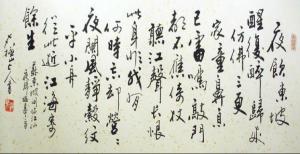 夜飲東坡
醒復醉歸來
仿佛三更
家童鼻息
已雷鳴敲門
都不應倚杖
聽江聲長恨
此身非我有
何時忘却營營
夜闌風靜縠紋
平小舟
從此逝江海寄
餘生